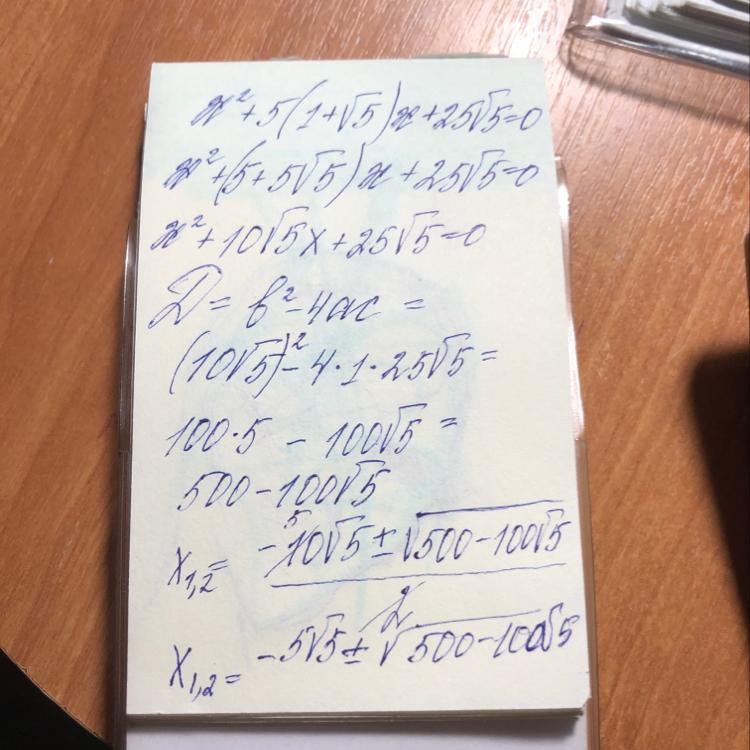 x² + 5(1+√5)x + 25√5 = 0
x² + (5+5√5)x + 25√5 = 0
x² + 10√5x + 25√5 = 0
D = b² - 4ac =
(10√5)² - 4·1·25√5 =
100·5 - 100√5 =
500 - 100√5
x₁,₂ = (-10√5 ± √(500-100√5)) / 2
5
x₁,₂ = -5√5 ± √(500-100√5)